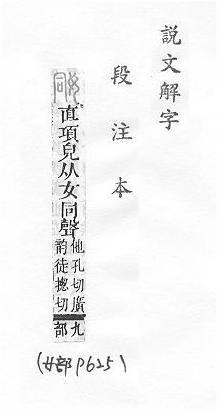 說文解字
段注本
姛 直項皃从女同聲
他孔切廣
韵徒摠切
九部
(女部P625)